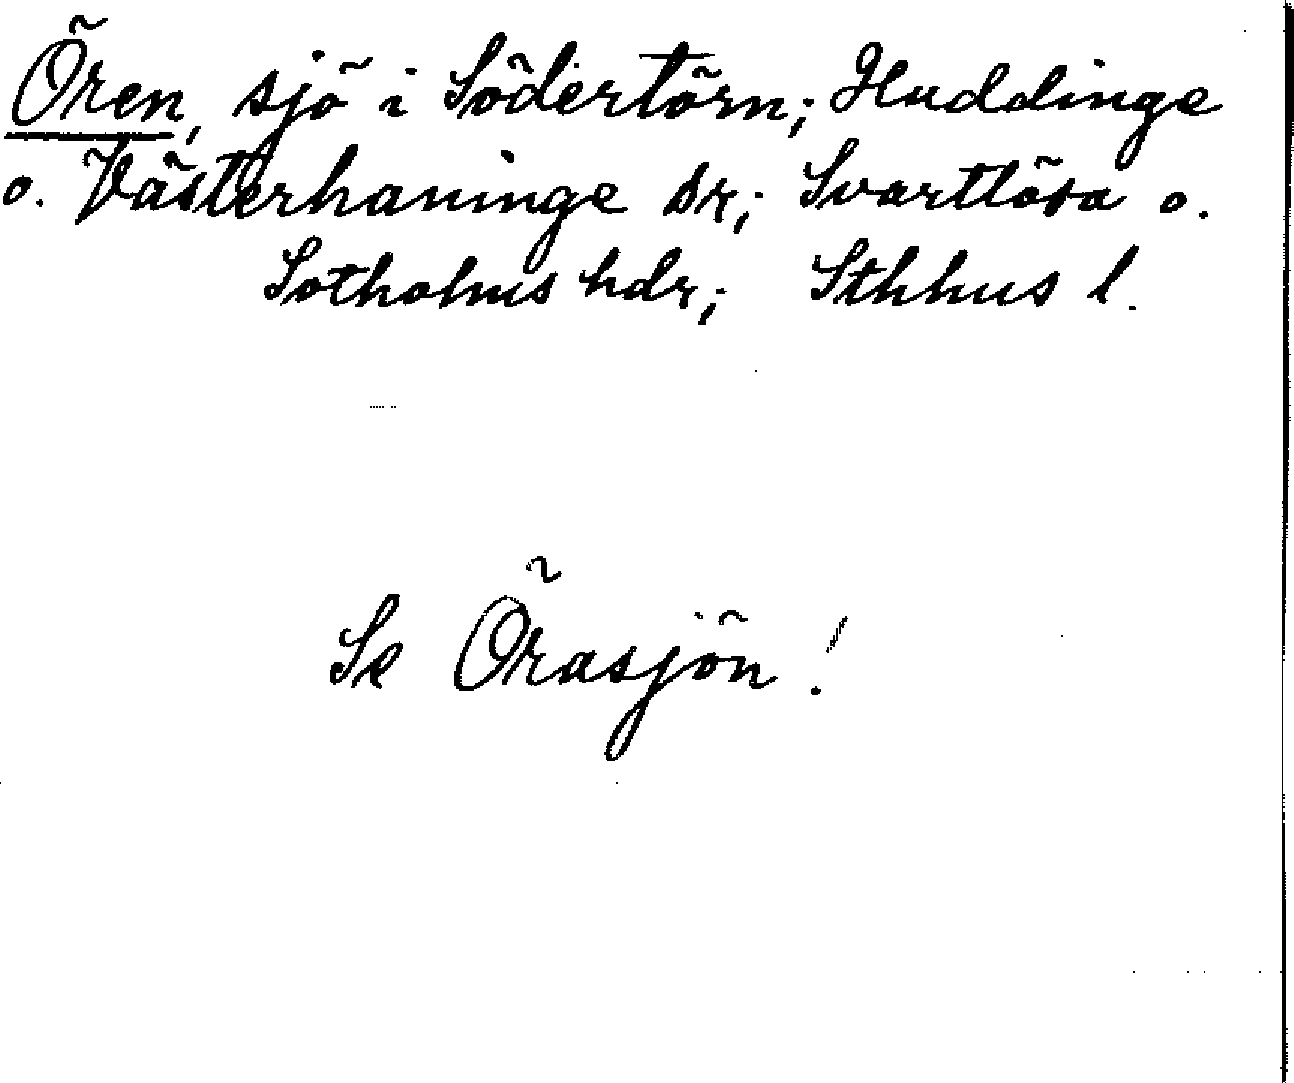 Ören, sjö i Södertörn; Huddinge
o. Västerhaninge sr; Svartlösa o.
Sotholms hdr; Sthlms l.
Se Örasjön!